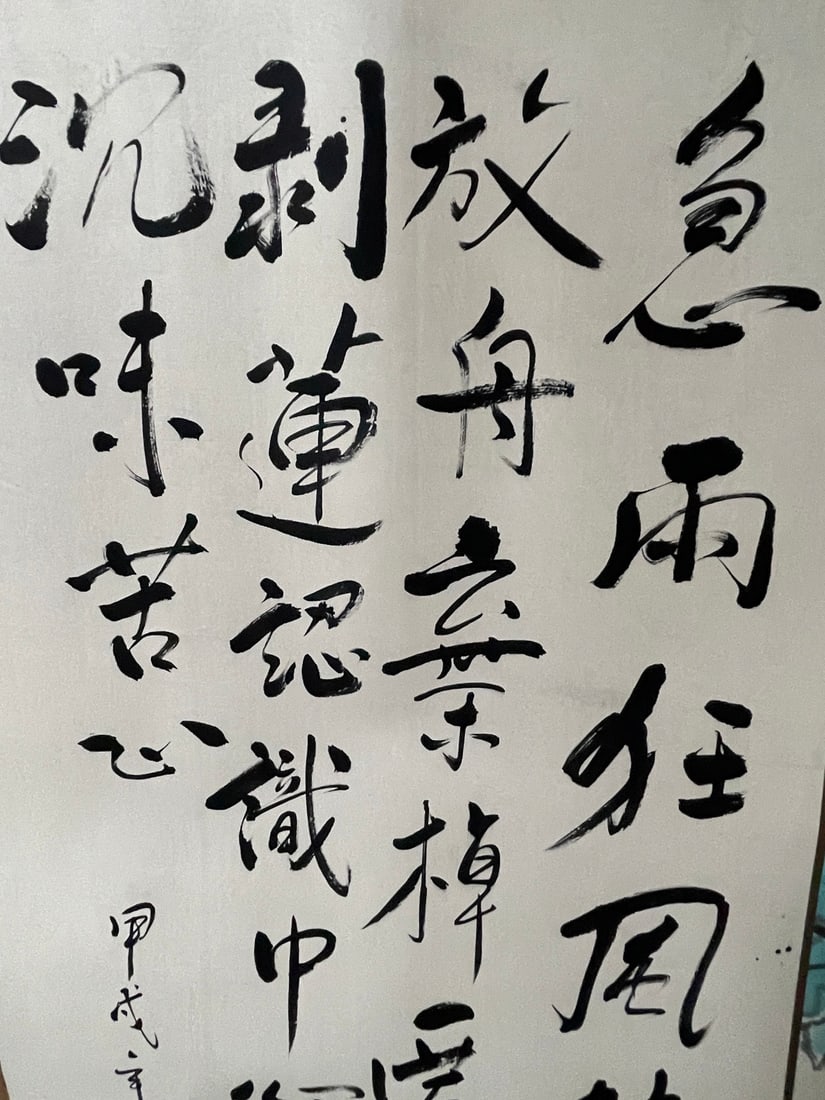 急雨狂風
放舟棄棹
剥蓮認識中
沉味苦心
甲戌年